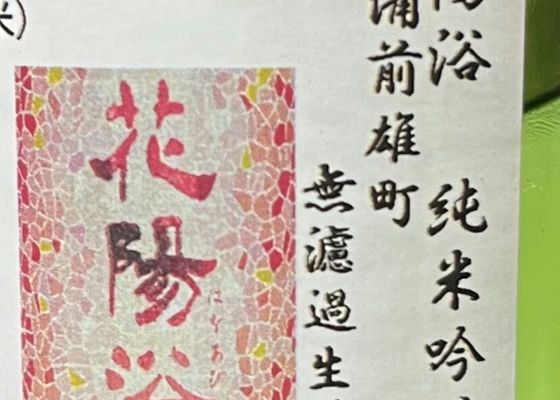 陽浴 純米吟
備前雄町
無濾過生
花陽浴
はなあび
米)